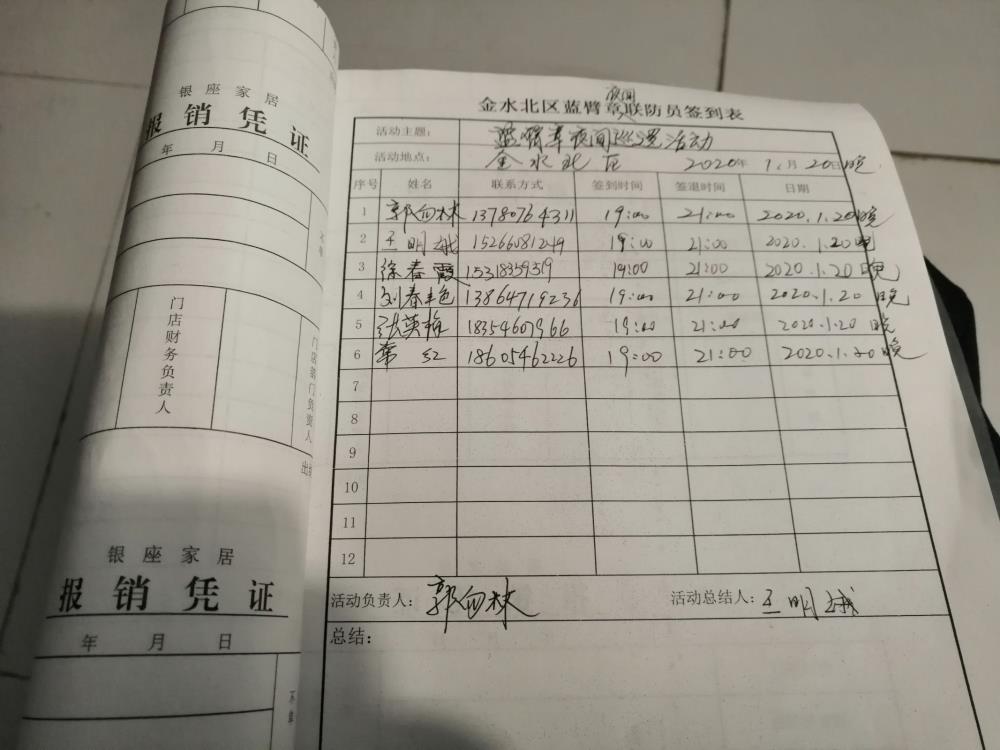 银座家居
报销凭证
年 月 日
门店财务负责人
门店部门负责人
银座家居
报销凭证
年 月 日
夜间
金水北区蓝臂章联防员签到表
活动主题: 蓝臂章夜间巡逻活动
活动地点: 金水北区 2020年1月20日晚
序号 姓名 联系方式 签到时间 签退时间 日期
1 郭向林 13780764311 19:00 21:00 2020.1.20晚
2 王明娥 15266081249 19:00 21:00 2020.1.20晚
3 徐春霞 15318359519 19:00 21:00 2020.1.20晚
4 刘春艳 13864719236 19:00 21:00 2020.1.20晚
5 张英梅 18354607966 19:00 21:00 2020.1.20晚
6 红 18605462226 19:00 21:00 2020.1.20晚
7
8
9
10
11
12
活动负责人: 郭向林 活动总结人: 王明娥
总结: